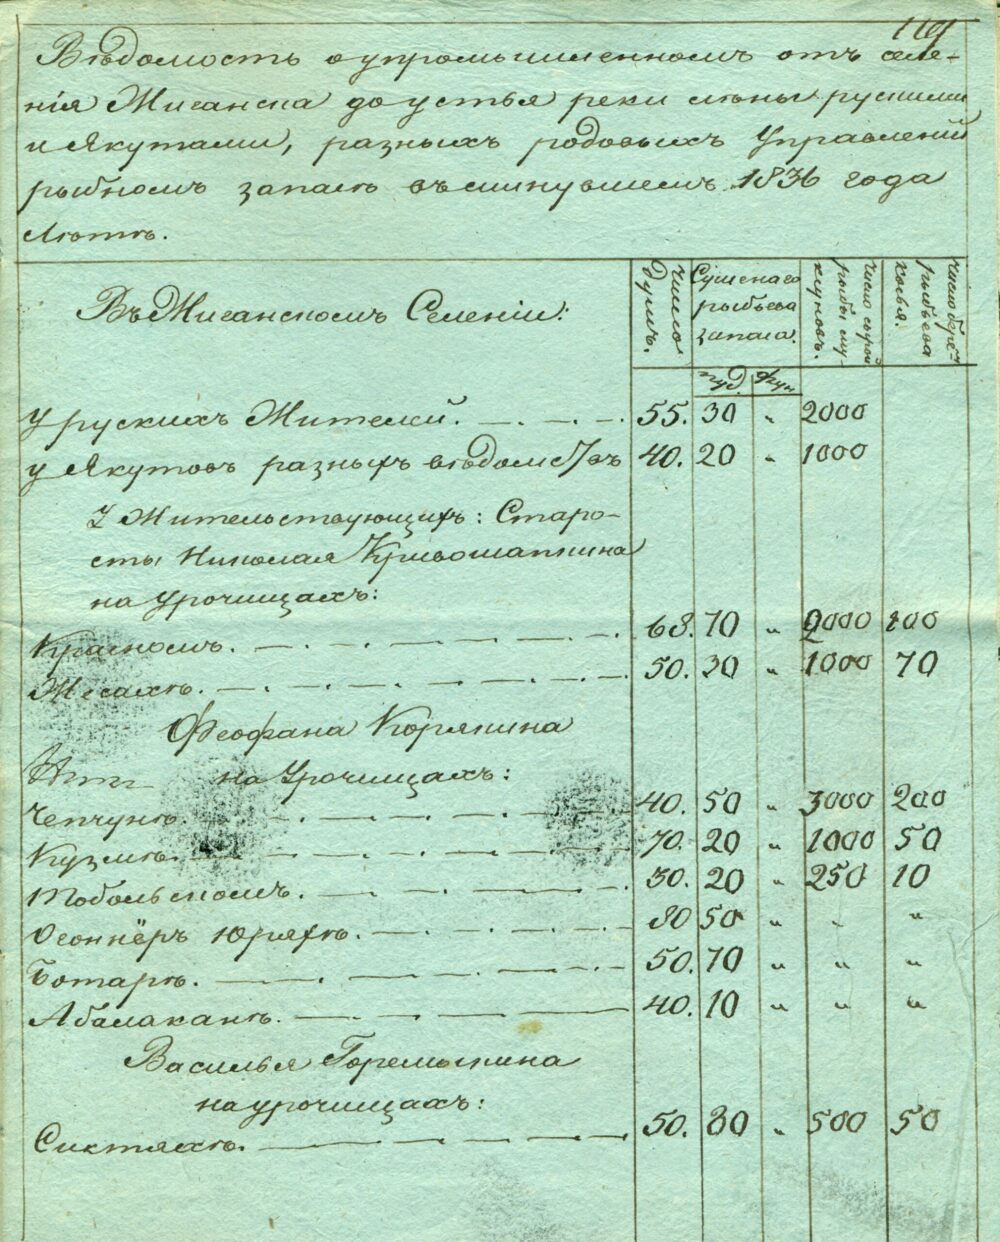 119
Вѣдомость о упромышленномъ отъ селе-
нія Жиганска до устья реки лѣны рускими
и Якутами, разныхъ родовыхъ Управленій
рыбномъ запасѣ въ минувшемъ 1836 года
лѣтѣ.
Въ Жиганскомъ Селеніи:
Число душъ.
Сушенаго рыбьева запаса.
пуд. фун
Число сырой рыбы му-
куновъ.
число баре-
рыбьева
ковья.
У рускихъ Жителей. 55. 30 „ 2000
у Якутовъ разныхъ вѣдомствъ 40. 20 „ 1000
У Жительствующихъ: Старо-
сты Николая Кривошапкина
на урочищахъ:
Красномъ. 68. 70 „ 2000 100
Жесахѣ. 50. 30 „ 1000 70
Феофана Корякина
на Урочищахъ:
Чепчунѣ. 40. 50 „ 3000 200
Кузмѣ. 70. 20 „ 1000 50
Тобольскомъ. 30. 20 „ 250 10
Осоннёръ Юряхѣ. 80 50 „ „ „
Ботарѣ. 50. 70 „ „ „
Абалаканѣ. 40. 10 „ „ „
Василья Горемыкина
на урочищахъ:
Сиктяхѣ. 50. 80 „ 500 50